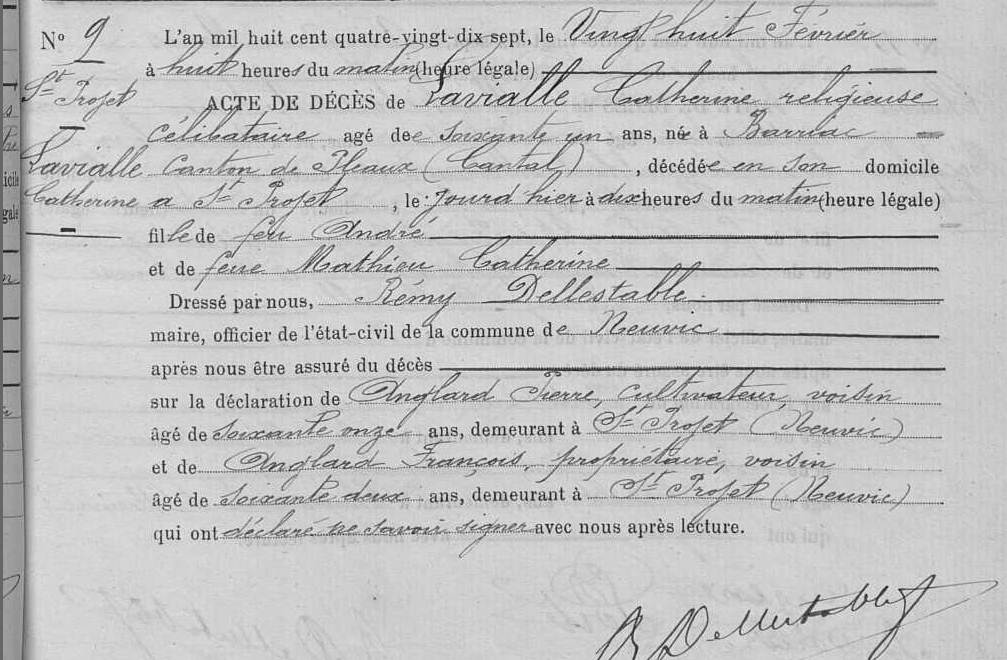 N° 9 L'an mil huit cent quatre-vingt-dix sept, le Vingt huit Février
à huit heures du matin (heure légale)
St Projet
ACTE DE DÉCÈS de Lavialle Catherine religieuse
célibataire agé dee soixante un ans, née à Barriac
Lavialle
Canton de Pleaux (Cantal), décédée en son domicile
Catherine
a St Projet, le jourd hier à dix heures du matin (heure légale)
fille de feu André
et de feue Mathieu Catherine
Dressé par nous, Rémy Dellestable
maire, officier de l'état-civil de la commune de Neuvic
après nous être assuré du décès
sur la déclaration de Anglard Pierre, cultivateur, voisin
âgé de soixante onze ans, demeurant à St Projet (Neuvic)
et de Anglard François, propriétaire, voisin
âgé de soixante deux ans, demeurant à St Projet (Neuvic)
qui ont déclaré ne savoir signer avec nous après lecture.
R Dellestable